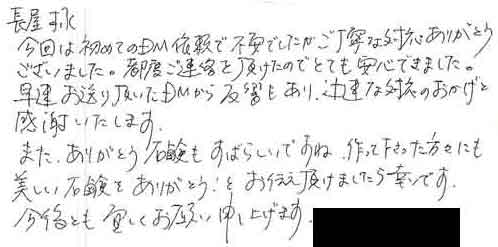 長屋 様
今回は初めてのDM依頼で不安でしたがご丁寧な対応ありがとう
ございました。都度ご連絡を頂けたのでとても安心できました。
早速お送り頂いたDMから反響もあり、迅速な対応のおかげと
感謝いたします。
また、ありがとう石鹸もすばらしいですね、作って下さった方々にも
美しい石鹸をありがとう!とお伝え頂けましたら幸いです。
今後とも宜しくお願い申し上げます。